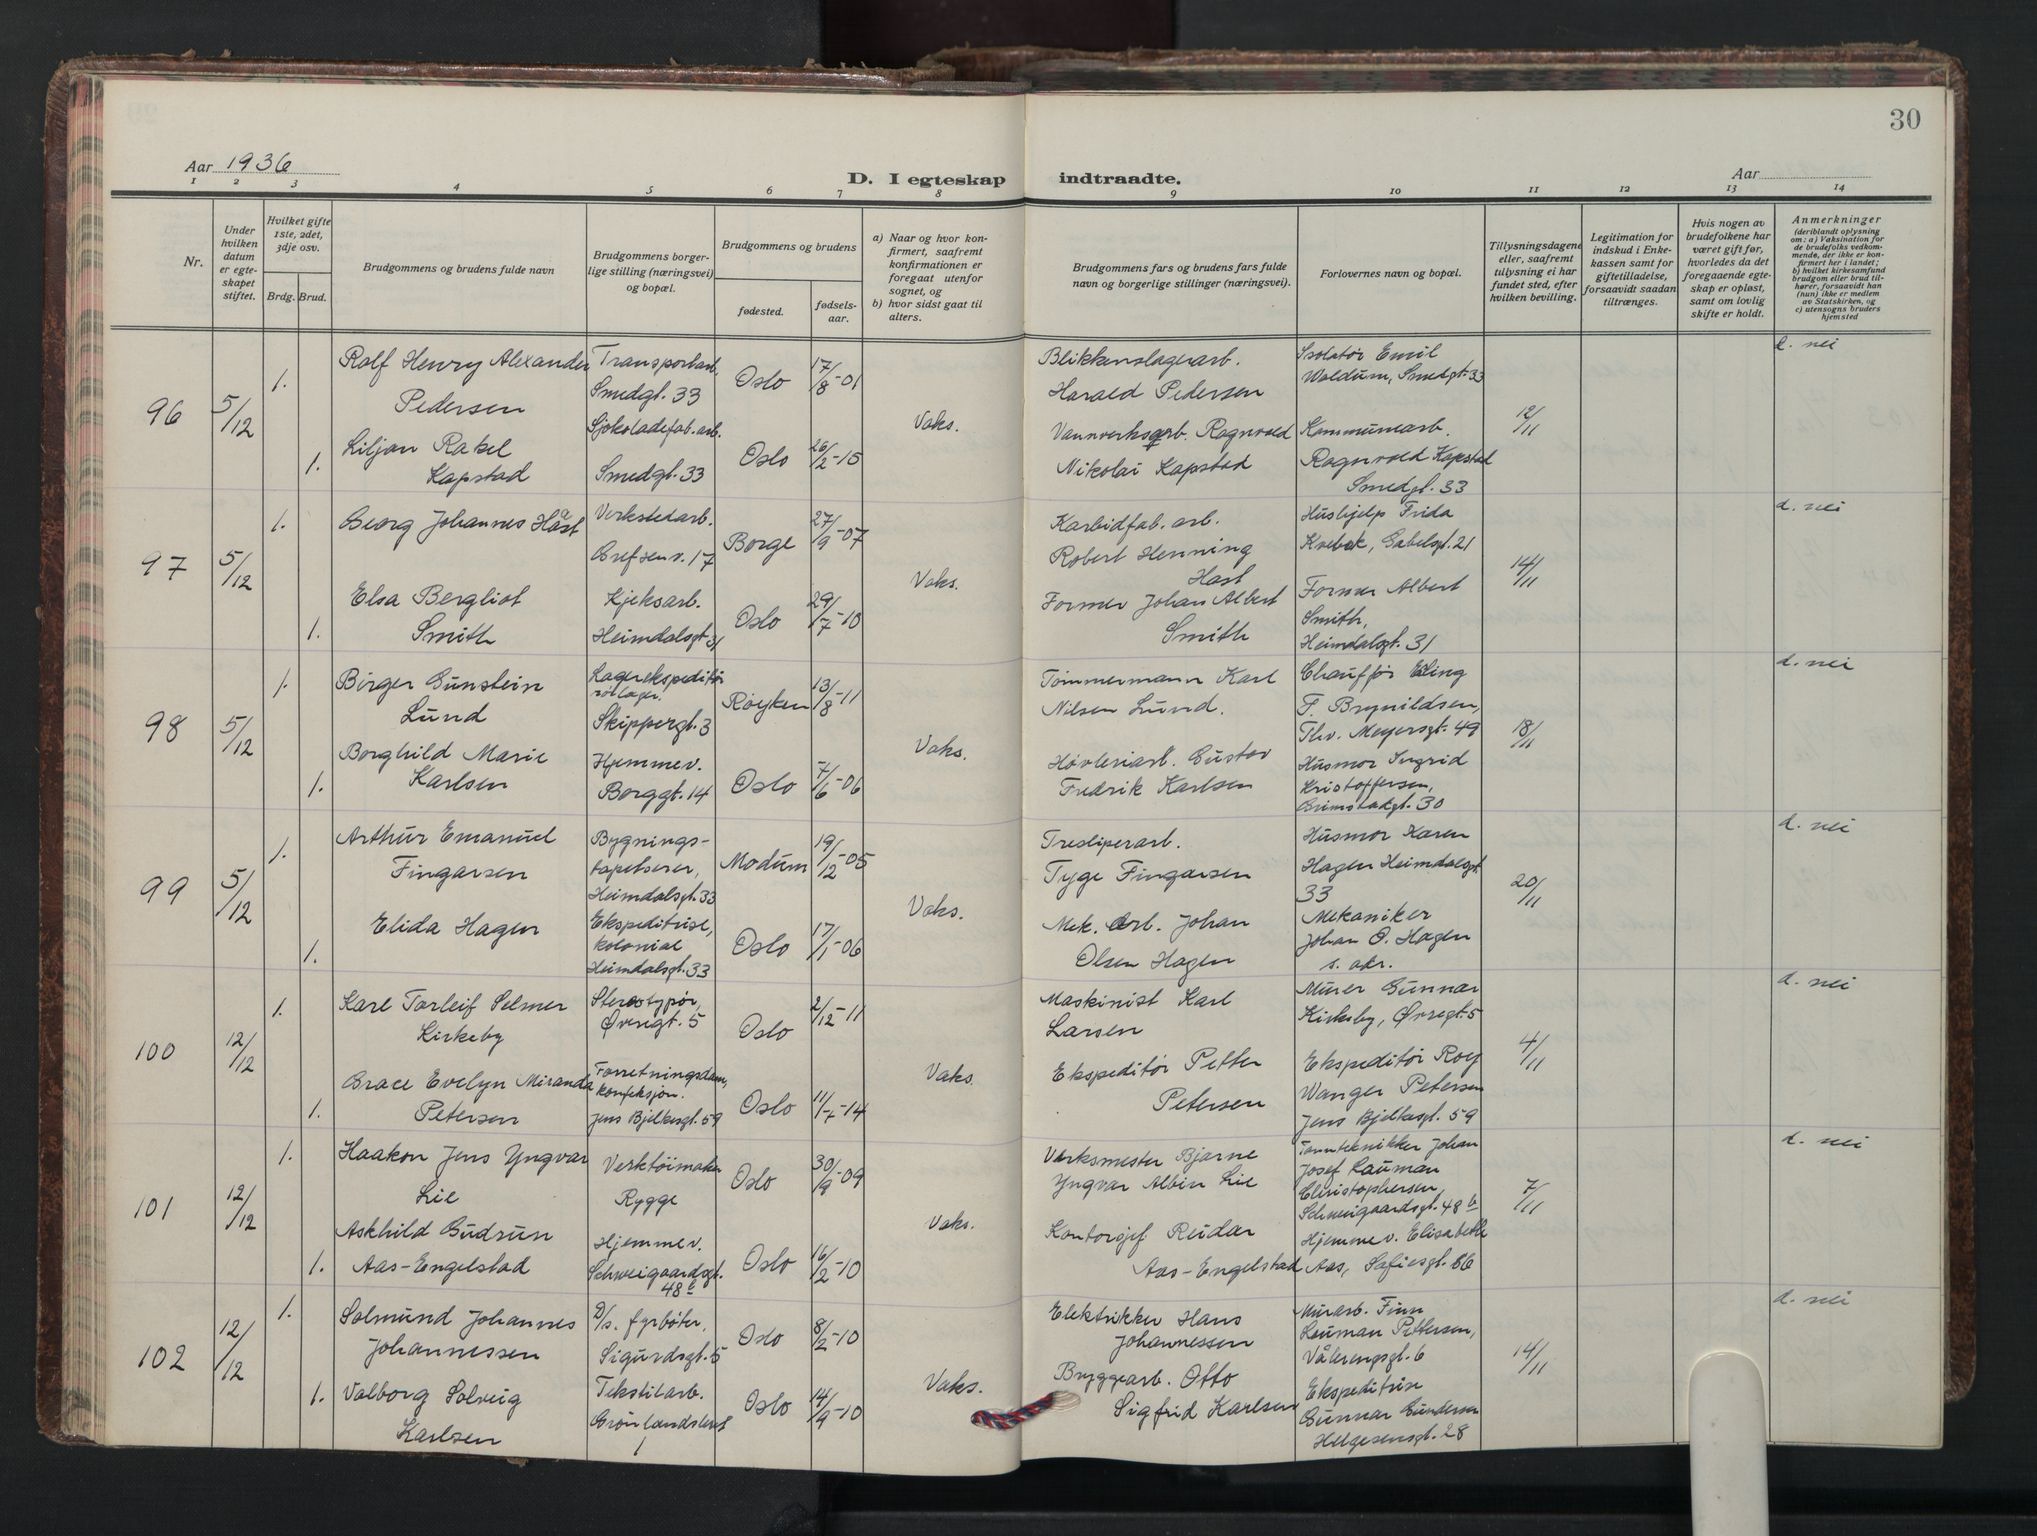 30
Aar 1936
D. I egteskap indtraadte.
Aar
1 2 3 4 5 6 7 8 9 10 11 12 13 14
Nr.
Under hvilken datum er egte-skapet stiftet.
Hvilket gifte 1ste, 2det, 3dje osv.
Brdg. Brud.
Brudgommens og brudens fulde navn
Brudgommens borger-lige stilling (næringsvei) og bopæl.
Brudgommens og brudens
fødested.
fødsels-aar.
a) Naar og hvor kon-firmert, saafremt konfirmationen er foregaat utenfor sognet, og
b) hvor sidst gaat til alters.
Brudgommens fars og brudens fars fulde navn og borgerlige stillinger (næringsvei).
Forlovernes navn og bopæl.
Tillysningsdagene eller, saafremt tillysning ei har fundet sted, efter hvilken bevilling.
Legitimation for indskud i Enke-kassen samt for giftetilladelse, forsaavidt saadan tiltrænges.
Hvis nogen av brudefolkene har været gift før, hvorledes da det foregaaende egte-skap er opløst, samt om lovlig skifte er holdt.
Anmerkninger
(deriblandt oplysning om: a) Vaksination for de brudefolks vedkom-mende, der ikke er kon-firmert her i landet;
b) hvilket kirkesamfund brudgom eller brud til-hører, forsaavidt han (hun) ikke er medlem av Statskirken, og
c) utensogns bruders hjemsted
96 5/12
1. Rolf Henry Alexander
Pedersen
Transportarb.
Smedgt. 33
Oslo 17/8-01
1. Liljan Rakel
Kapstad
Sjokoladefab. arb.
Smedgt. 33
Oslo 26/2-15
Vaks.
Blikkenslagerarb.
Harald Pedersen
Vannverksarb. Ragnvald
Nikolai Kapstad
Isolatør Emil
Waldum, Smedgt. 33
Kommunearb.
Ragnvald Kapstad
Smedgt. 33
12/11
d. nei
97 5/12
1. Georg Johannes Hast
Verkstedarb.
Grefsenv. 17
Borge 27/9-07
1. Elsa Bergliot
Smith
Kjeksarb.
Heimdalsgt. 31
Oslo 29/7-10
Vaks.
Karbidfab. arb.
Robert Henning
Hast
Former Johan Albert
Smith
Hushjelp Frida
Kvebek, Gabelsgt. 21
Former Albert
Smith,
Heimdalsgt. 31
14/11
d. nei
98 5/12
1. Birger Gunstein
Lund
Lagerekspeditør
Skippergt. 3
Røyken 13/8-11
1. Borghild Marie
Karlsen
Hjemmev.
Borggt. 14
Oslo 7/6-06
Vaks.
Tømmermann Karl
Nilsen Lund.
Høvleriarb. Gustav
Fredrik Karlsen
Chauffør Erling
F. Brynildsen,
Thv. Meyersgt. 49
Husmor Ingrid
Kristoffersen,
Grimstadgt. 30
18/11
d. nei
99 5/12
1. Arthur Emanuel
Fingarsen
Bygnings-
tapetserer,
Heimdalsgt. 33
Modum 19/12-05
1. Elida Hagen
Ekspeditrise,
kolonial
Heimdalsgt. 33
Oslo 17/1-06
Vaks.
Tresliperarb.
Tyge Fingarsen
Mek. arb. Johan
Olsen Hagen
Husmor Karen
Hagen Heimdalsgt.
33
Mekaniker
Johan O. Hagen
s. adr.
20/11
d. nei
100 12/12
1. Karl Torleif Selmer
Kirkeby
Stereotypør,
Øvregt. 5
Oslo 2/12-11
1. Grace Evelyn Miranda
Petersen
Forretningsdam,
konfeksjon.
Jens Bjelkesgt. 59
Oslo 11/7-14
Vaks.
Maskinist Karl
Larsen
Ekspeditør Petter
Petersen
Murer Gunnar
Kirkeby, Øvregt. 5
Ekspeditør Roy
Wanger Petersen
Jens Bjelkesgt. 59
4/11
d. nei
101 12/12
1. Haakon Jens Yngvar
Lie
Verktøimaker
Rygge
Oslo 30/9-09
1. Askhild Gudrun
Aas-Engelstad
Hjemmev.
Schweigaardsgt.
48 b
Oslo 16/2-10
Vaks.
Verksmester Bjarne
Yngvar Albin Lie
Kontorsjef Reidar
Aas-Engelstad
Tannteknikker Johan
Josef Lauman
Christophersen,
Schweigaardsgt. 48 b
Hjemmev. Elisabeth
Aas, Sofiesgt. 66
7/11
d. nei
102 12/12
1. Salmund Johannes
Johannessen
D/s. fyrbøter,
Sigurdsgt. 5
Oslo 8/2-10
1. Valborg Solveig
Karlsen
Tekstilarb.
Grønlandsleret
1
Oslo 14/9-10
Vaks.
Elektrikker Hans
Johannessen
Bryggearb. Otto
Sigfrid Karlsen
Murarb. Finn
Lauman Pettersen,
Vålerengsgt. 6
Gunnar Gundersen
Helgesensgt. 28
14/11
d. nei